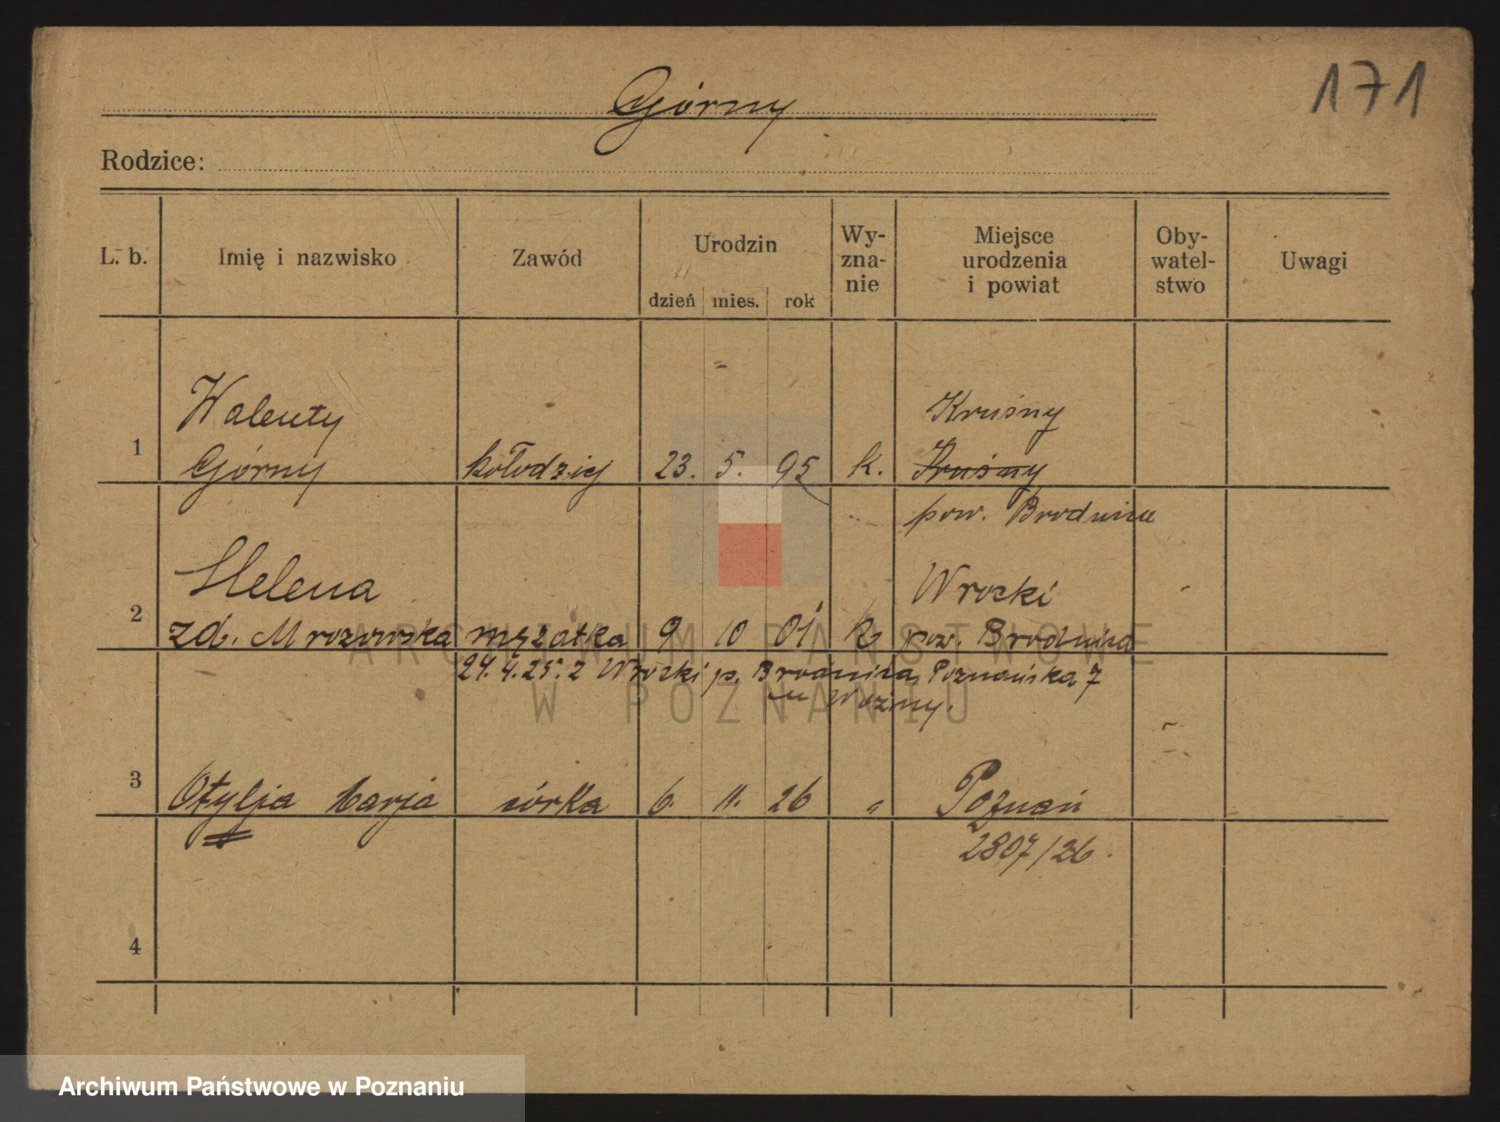 Górny
171
Rodzice:
L. b. Imię i nazwisko Zawód Urodzin dzień mies. rok Wy-zna-nie Miejsce urodzenia i powiat Oby-watel-stwo Uwagi
Walenty Kruśny
1 Górny kołodziej 23. 5. 95 k. Kruśny
pow. Brodnica
Helena Wrocki
2 zd. Mrozowska mężatka 9 10 01 k pow. Brodnica
24.4.25. z Wrocki p. Brodnica, Poznańska 7
u Woźny.
3 Otylja Marja córka 6. 11. 26 " Poznań
2807/26.
4
ARCHIWUM PAŃSTWOWE
W POZNANIU
Archiwum Państwowe w Poznaniu